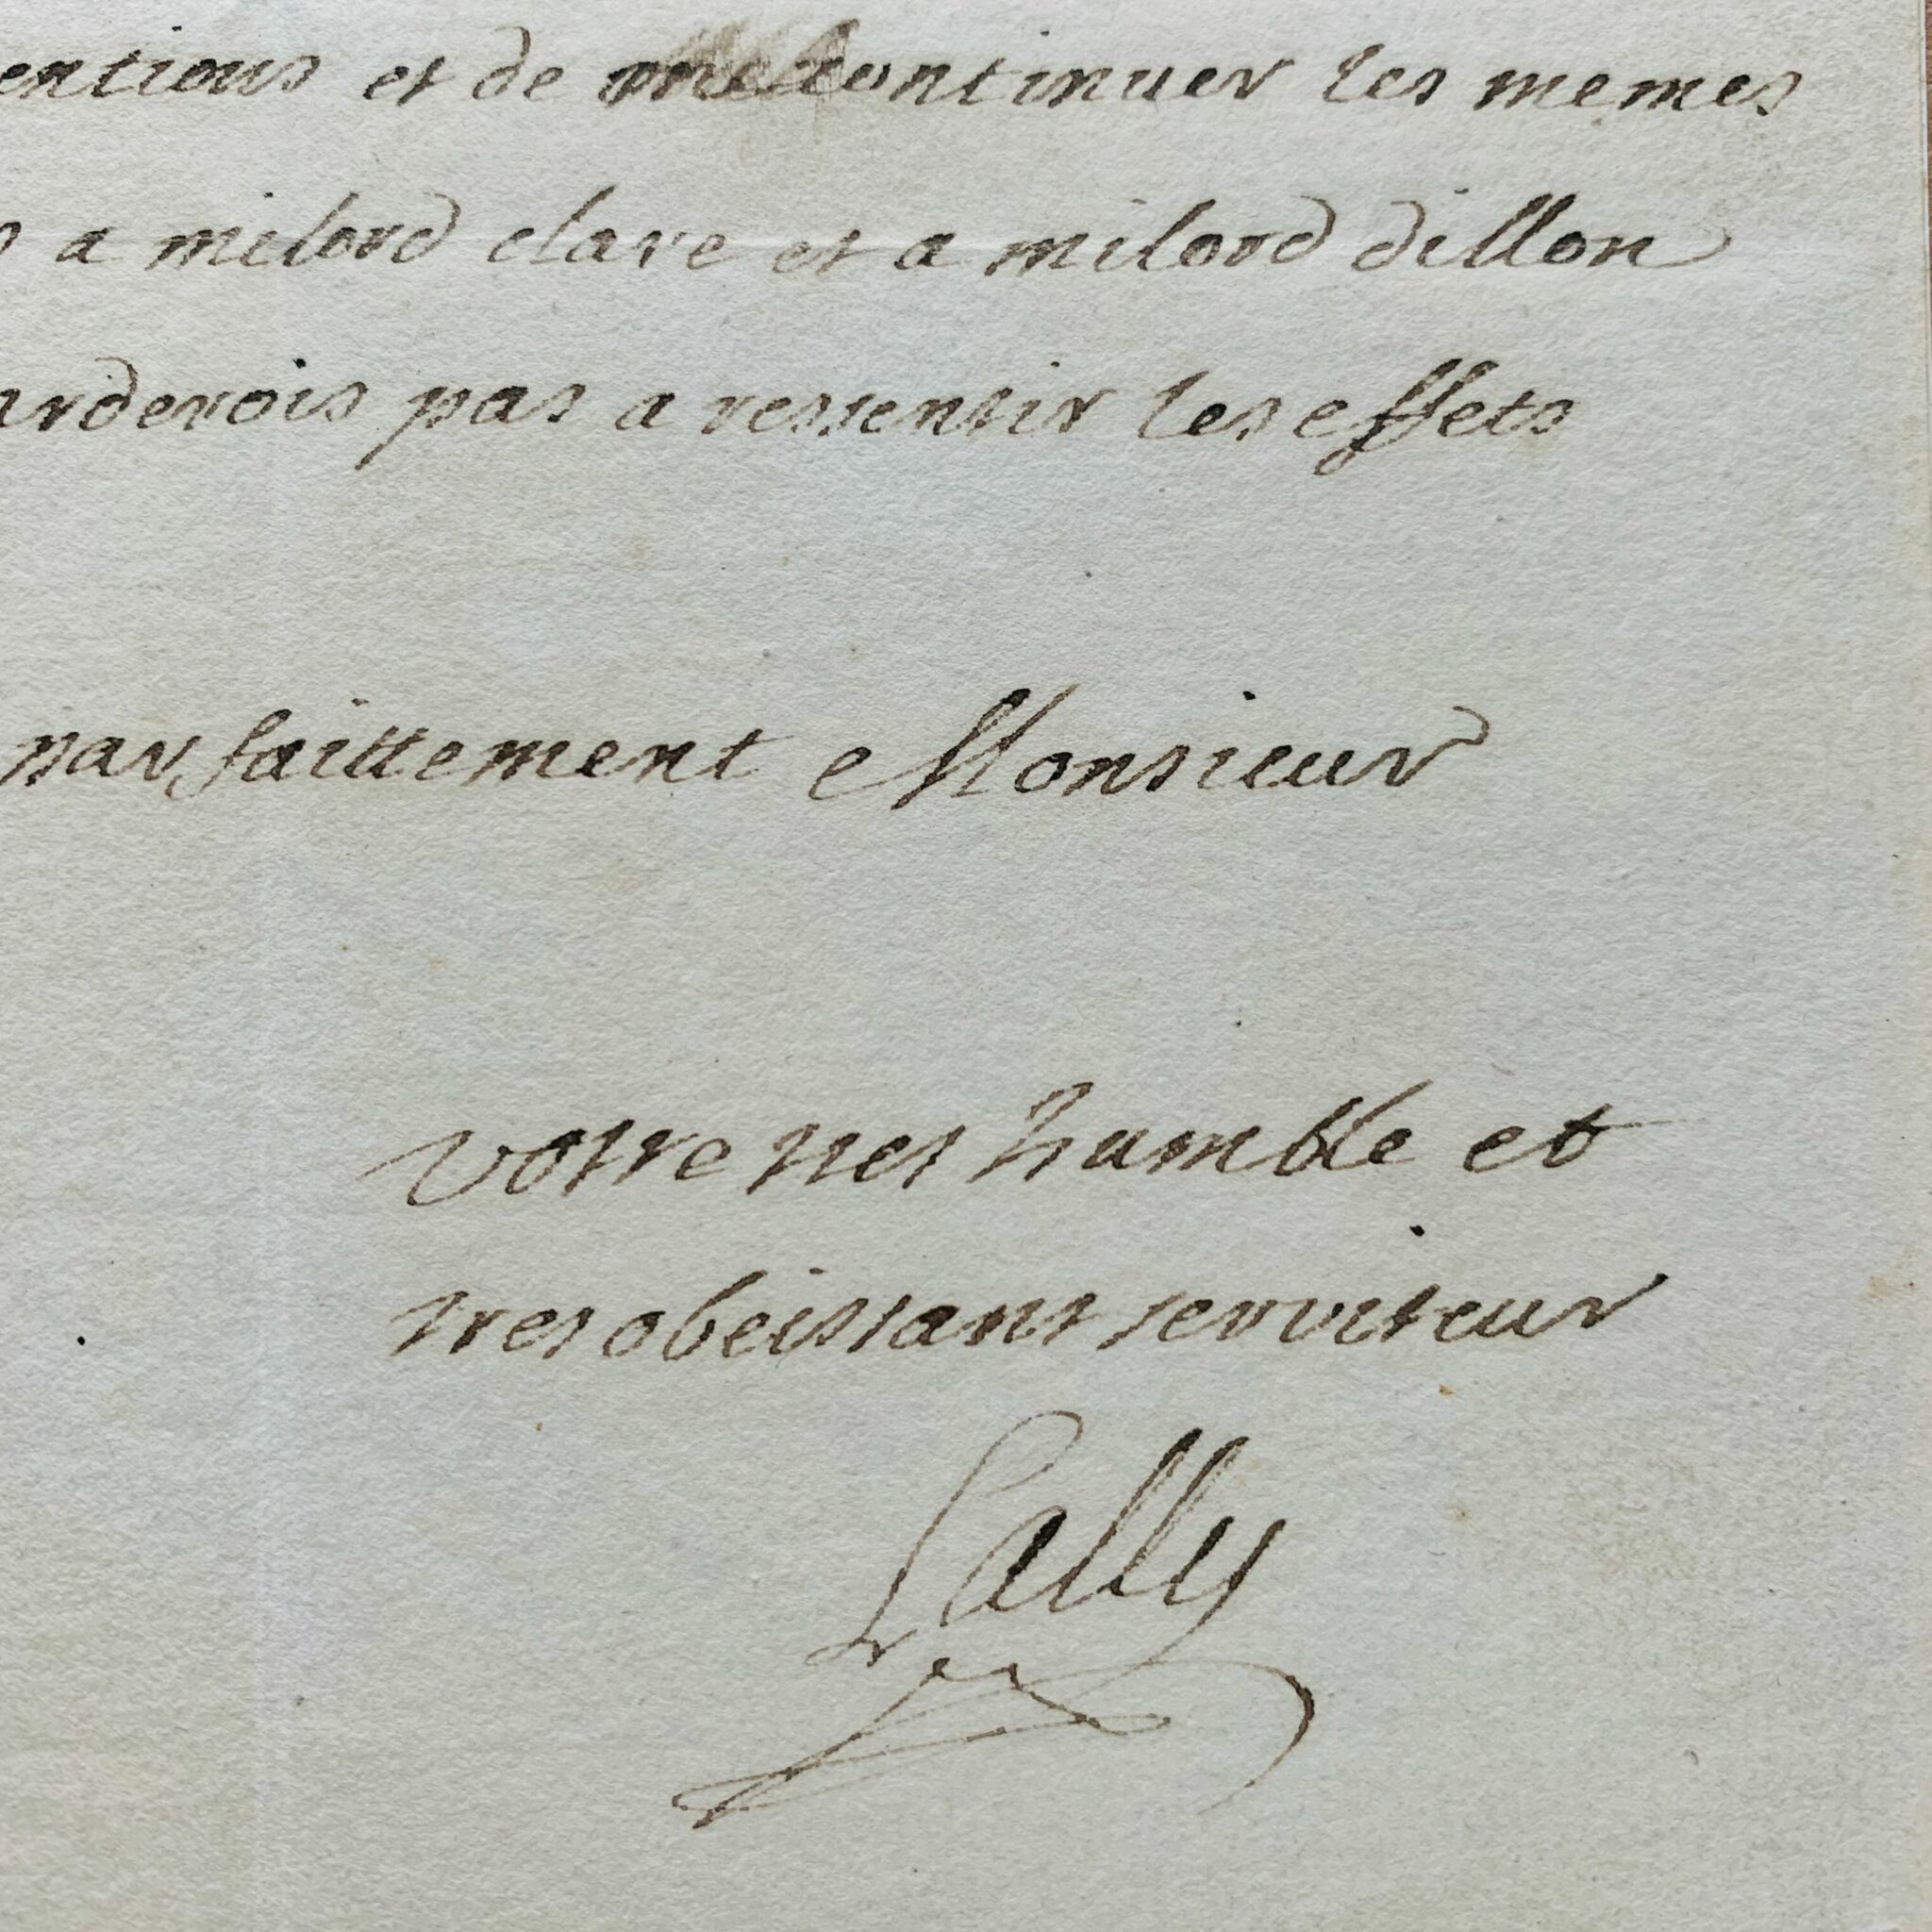 entions et de me continuer les memes
s a milord clare et a milord dillon
arderois pas a ressentir les effets
parfaittement Monsieur
votre tres humble et
tres obeissant serviteur
Lally